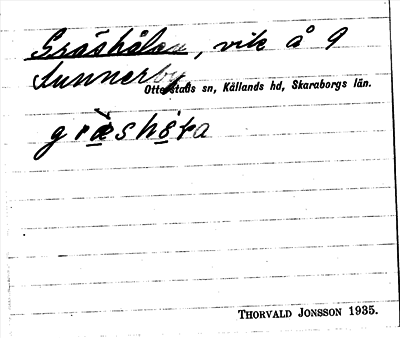 Gräshålan, vik å 9
Sunnerby
Otterstads sn, Kållands hd, Skaraborgs län.
græshå̱ra
THORVALD JONSSON 1935.